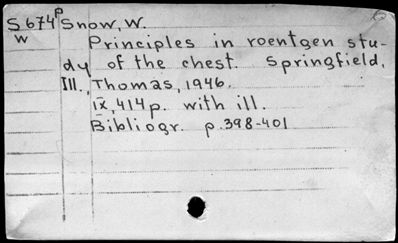 S 674 p Snow, W.
W Principles in roentgen stu-
dy of the chest. Springfield,
Ill., Thomas, 1946.
IX 414 p. with ill.
Bibliogr. p.398-401